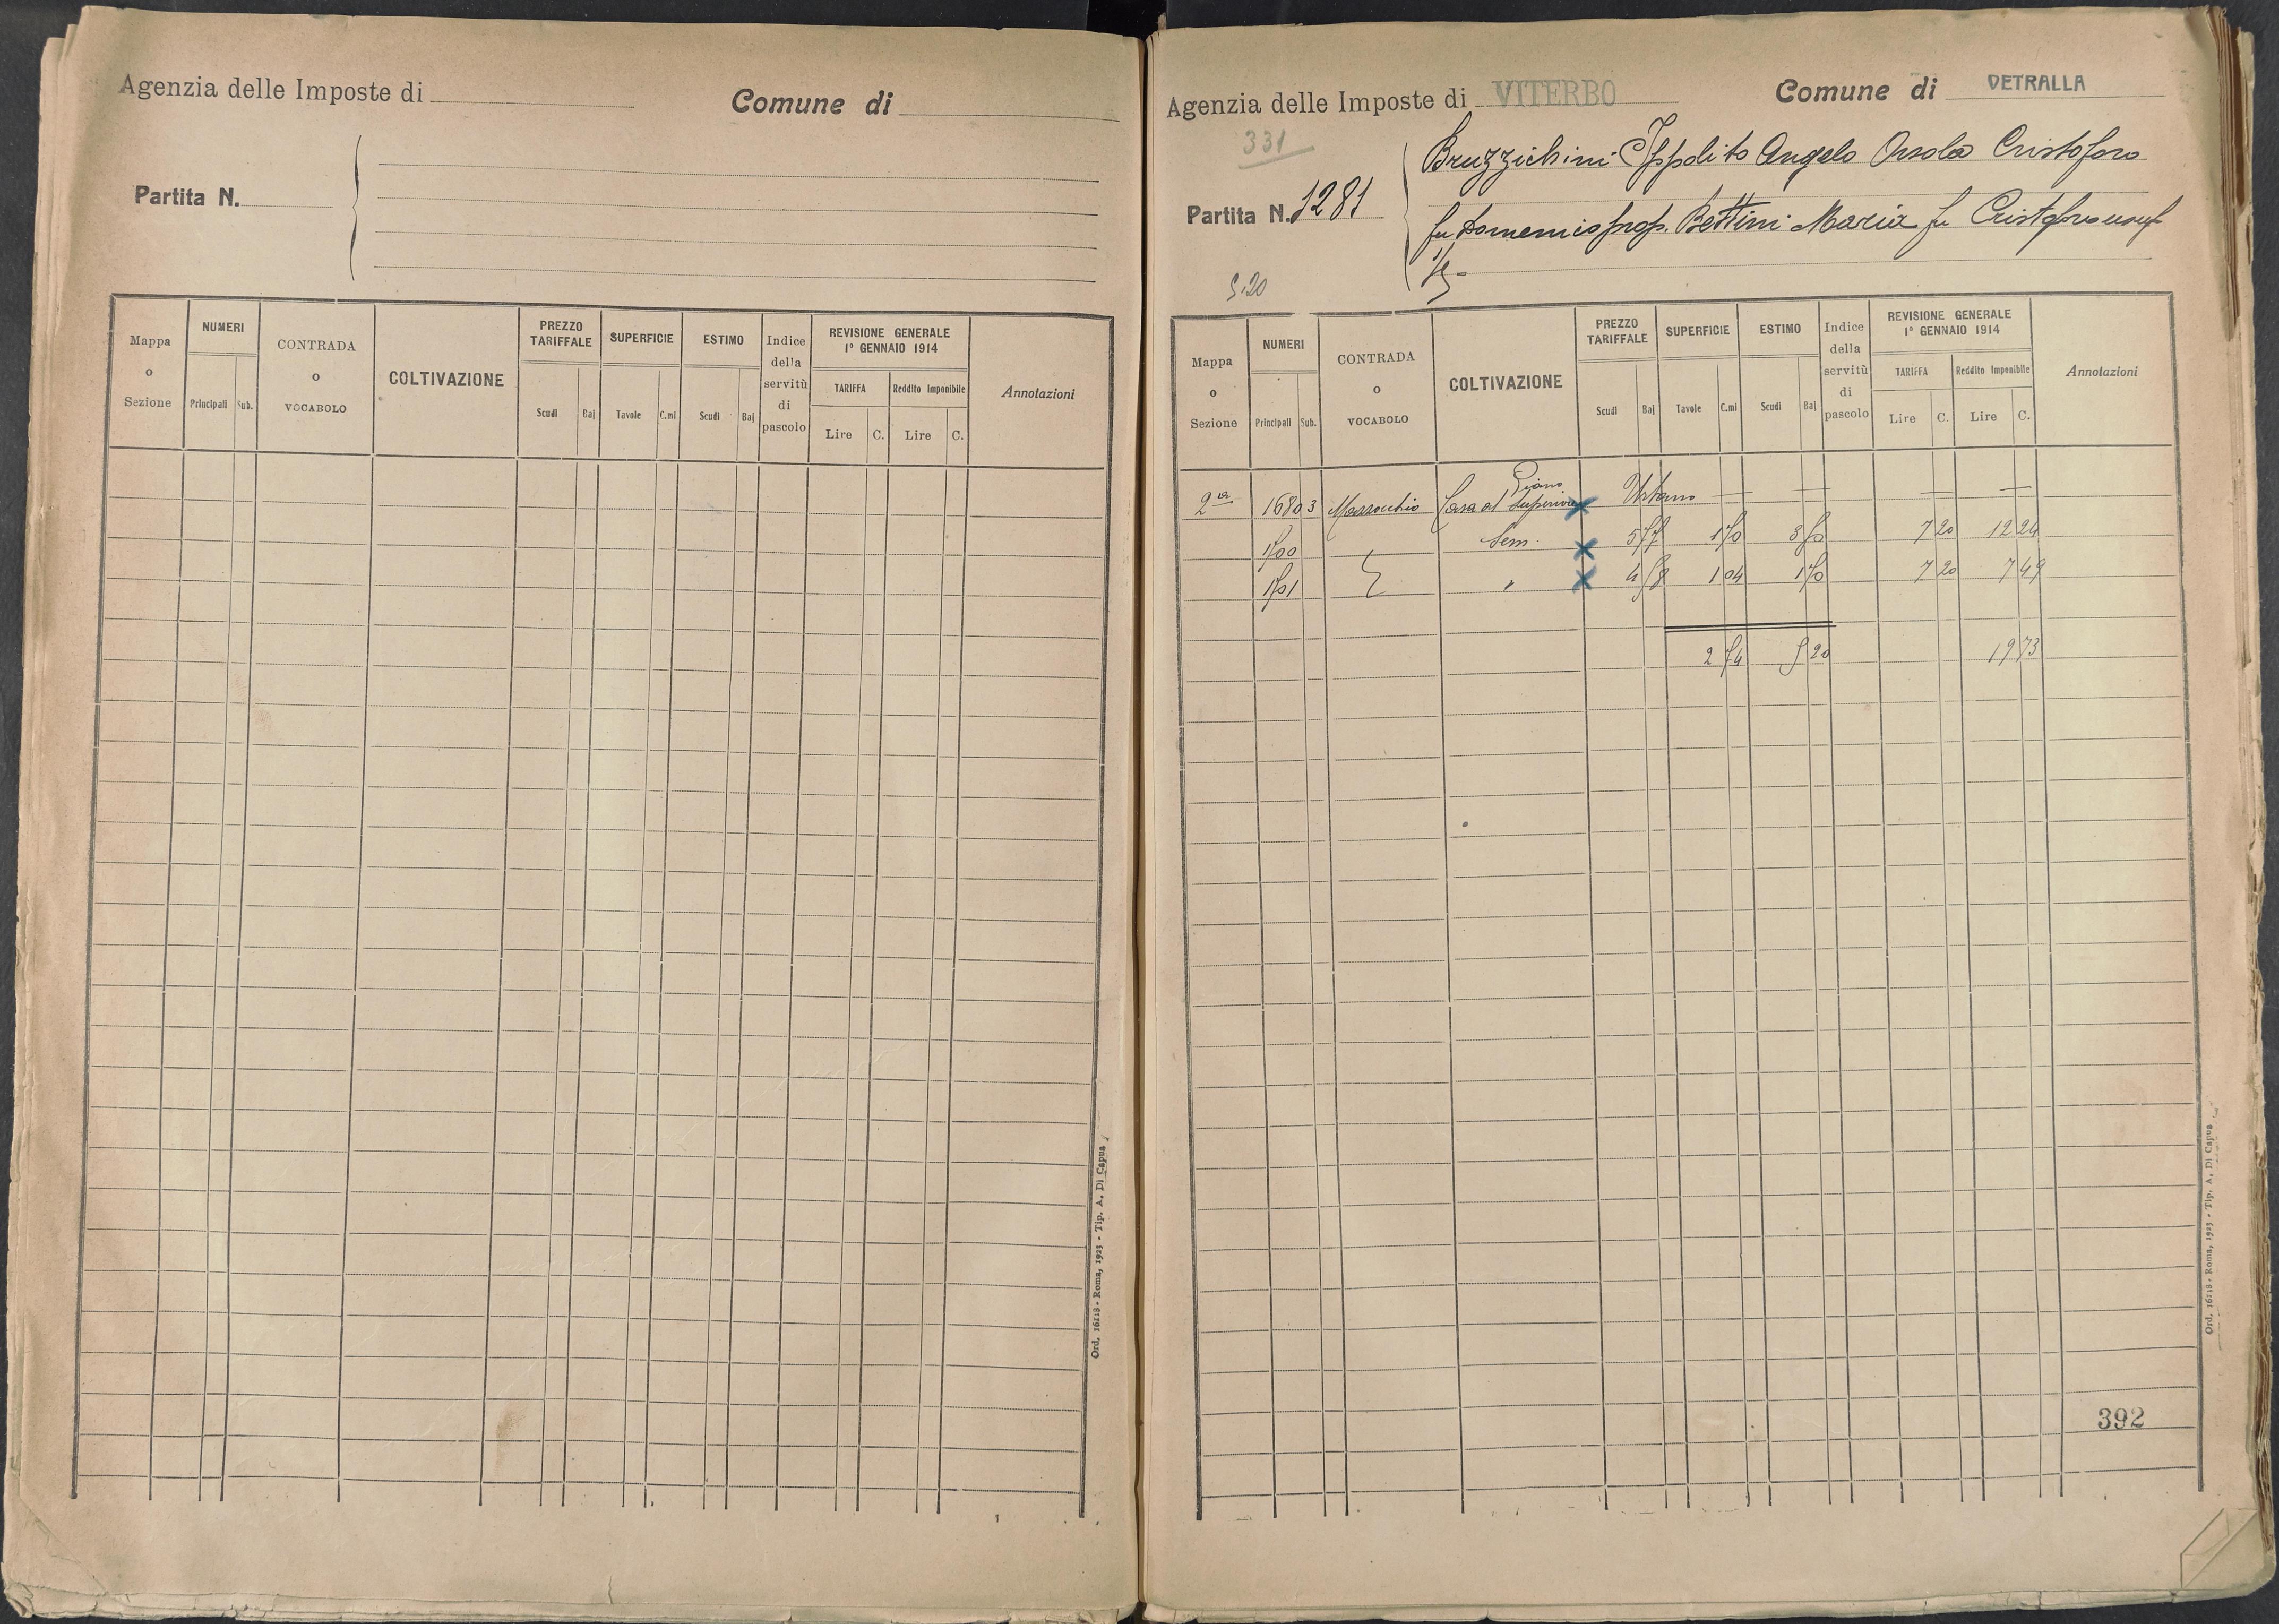 Agenzia delle Imposte di
Comune di
Partita N.
Mappa o Sezione
NUMERI
Principali
Sub.
CONTRADA o VOCABOLO
COLTIVAZIONE
PREZZO TARIFFALE
Scudi
Baj
SUPERFICIE
Tavole
C.mi
ESTIMO
Scudi
Baj
Indice della servitù di pascolo
REVISIONE GENERALE
1° GENNAIO 1914
TARIFFA
Reddito Imponibile
Lire
C.
Lire
C.
Annotazioni
Ord. 16118 - Roma, 1923 - Tip. A. Di Capua
Agenzia delle Imposte di VITERBO
Comune di VETRALLA
331
Bruzzichini Ippolito Angelo Orsola Cristoforo
Partita N. 1281
fu Domenico prop. Bettini Maria fu Cristoforo usuf
Mappa o Sezione
NUMERI
Principali
Sub.
CONTRADA o VOCABOLO
COLTIVAZIONE
PREZZO TARIFFALE
Scudi
Baj
SUPERFICIE
Tavole
C.mi
ESTIMO
Scudi
Baj
Indice della servitù di pascolo
REVISIONE GENERALE
1° GENNAIO 1914
TARIFFA
Reddito Imponibile
Lire
C.
Lire
C.
Annotazioni
2a 1680 3 Mazzocchio Casa al Piano Superiore Urbano
Sem. 7 20 12 24
1 04 7 20 7 49
2 74 20 19 73
392
Ord. 16118 - Roma, 1923 - Tip. A. Di Capua